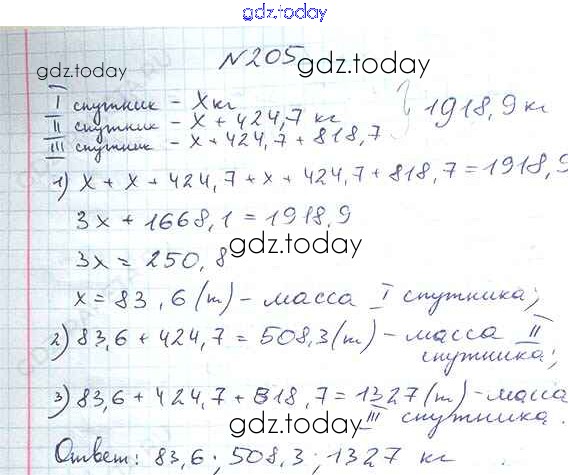 gdz.today
№205
gdz.today
gdz.today
I спутник - x кг
II спутник - x + 424,7 кг } 1918,9 кг
III спутник - x + 424,7 + 818,7
1) x + x + 424,7 + x + 424,7 + 818,7 = 1918,9
3x + 1668,1 = 1918,9
3x = 250,8
gdz.today
x = 83,6 (т) - масса I спутника;
2) 83,6 + 424,7 = 508,3 (т) - масса II
gdz.today
спутника;
3) 83,6 + 424,7 + 818,7 = 1327 (т) - масса
gdz.today
III спутника.
Ответ: 83,6; 508,3; 1327 кг